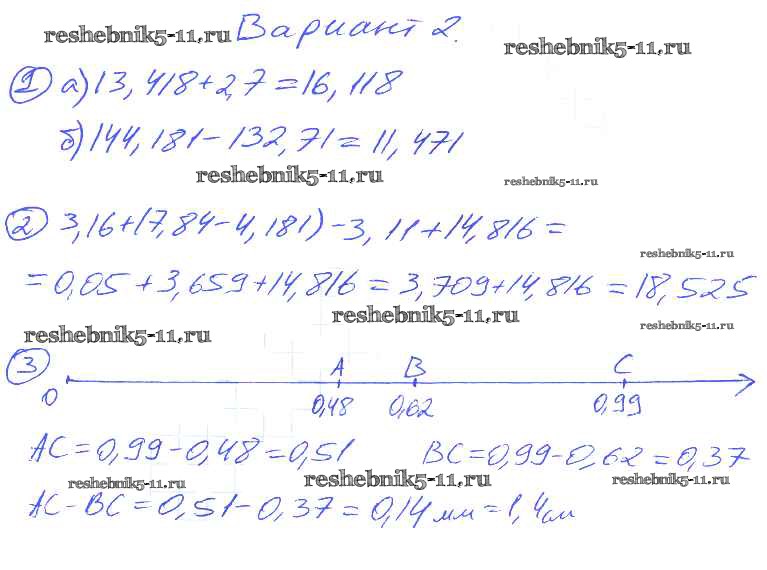 reshebnik5-11.ru Вариант 2.
reshebnik5-11.ru
① а) 13,418+2,7=16,118
б) 144,181-132,71=11,471
reshebnik5-11.ru reshebnik5-11.ru
② 3,16+(7,84-4,181)-3,11+14,816=
reshebnik5-11.ru
=0,05+3,659+14,816=3,709+14,816=18,525
reshebnik5-11.ru reshebnik5-11.ru
reshebnik5-11.ru
③ A B C
0 0,48 0,62 0,99
AC=0,99-0,48=0,51 BC=0,99-0,62=0,37
reshebnik5-11.ru reshebnik5-11.ru reshebnik5-11.ru
AC-BC=0,51-0,37=0,14мм=1,4см